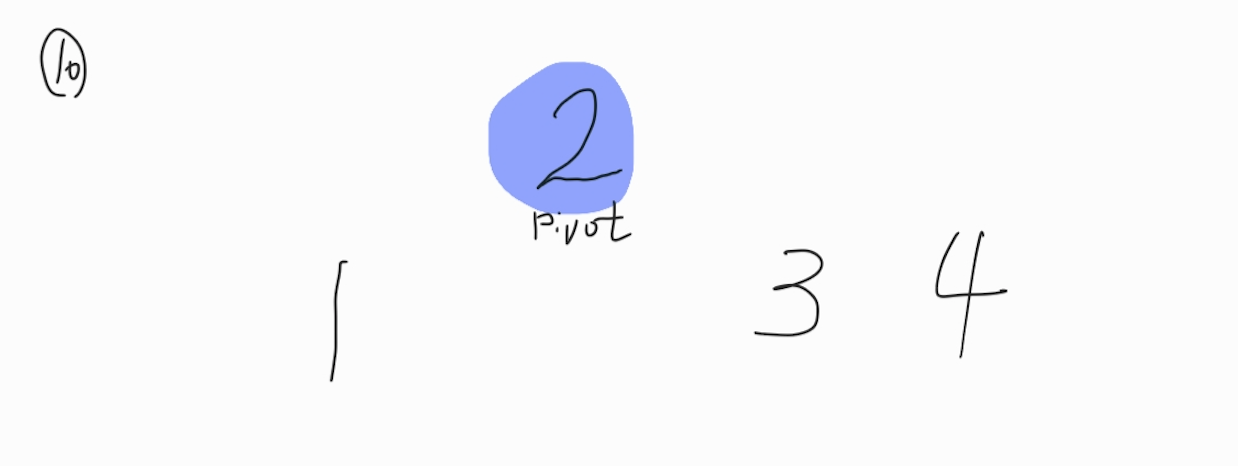 10
2
pivot
1 3 4